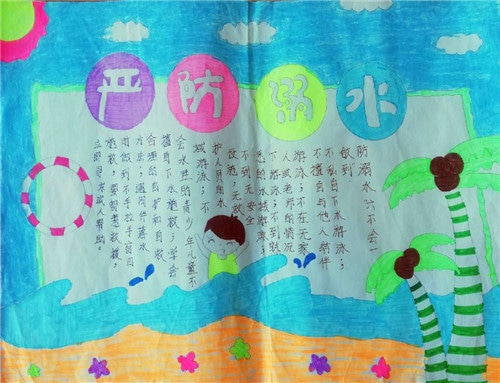 严防溺水
防溺水六不会一
做到
不私自下水游泳；
不擅自与他人结伴
游泳；不在无家
人或老师的情况
下游泳；不到
悉的水域游泳；
不到无安全
设施，无救
护人员的水
域游泳；不
会水性的青少年儿童不
擅自下水施救；学会
合理的自护和自救
方法；遇同伴落水
时做到不手拉手盲目
施救，要智慧救援，
立即寻求成人帮助。